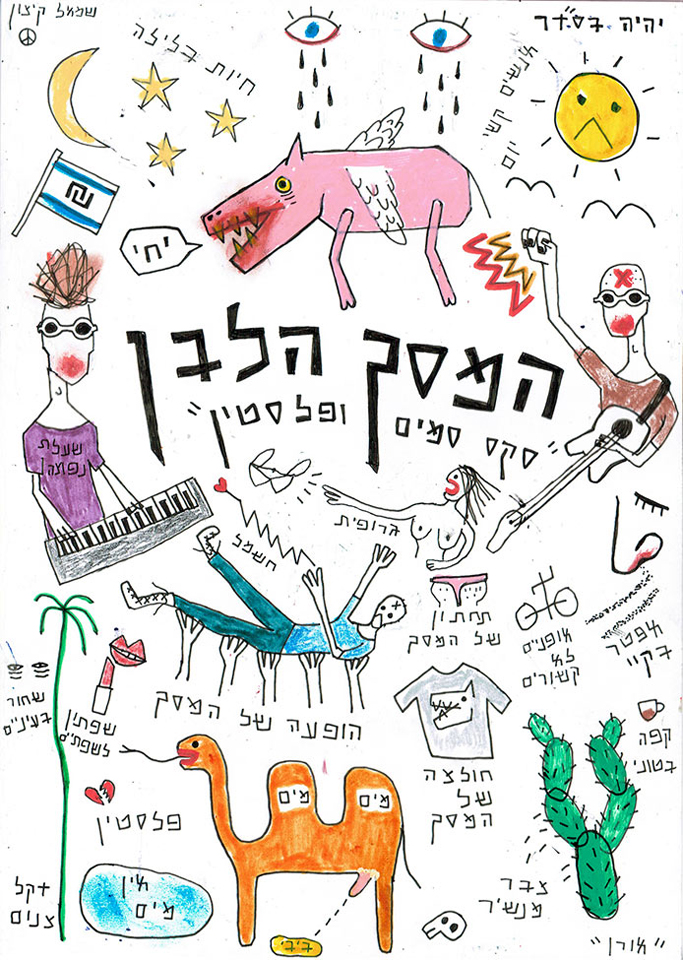 שמאל קיצון
יהיה בס״דר
חיות בלילה
₪
יחי
המסך הלבן
״סקס סמים ופלסטין״
שעלת
נפוצה!
גרופית
חשמל
תחתון
של המסך
אופנים
לא
קשורים
אפטר
שחור
בעיניים
שפתון
לשפתיים
הופעה של המסך
חולצה
של
המסך
קפה
בטוני
מים
מים
פלסטין
אין
מים
דקל
ביבי
צבר
״אורן״